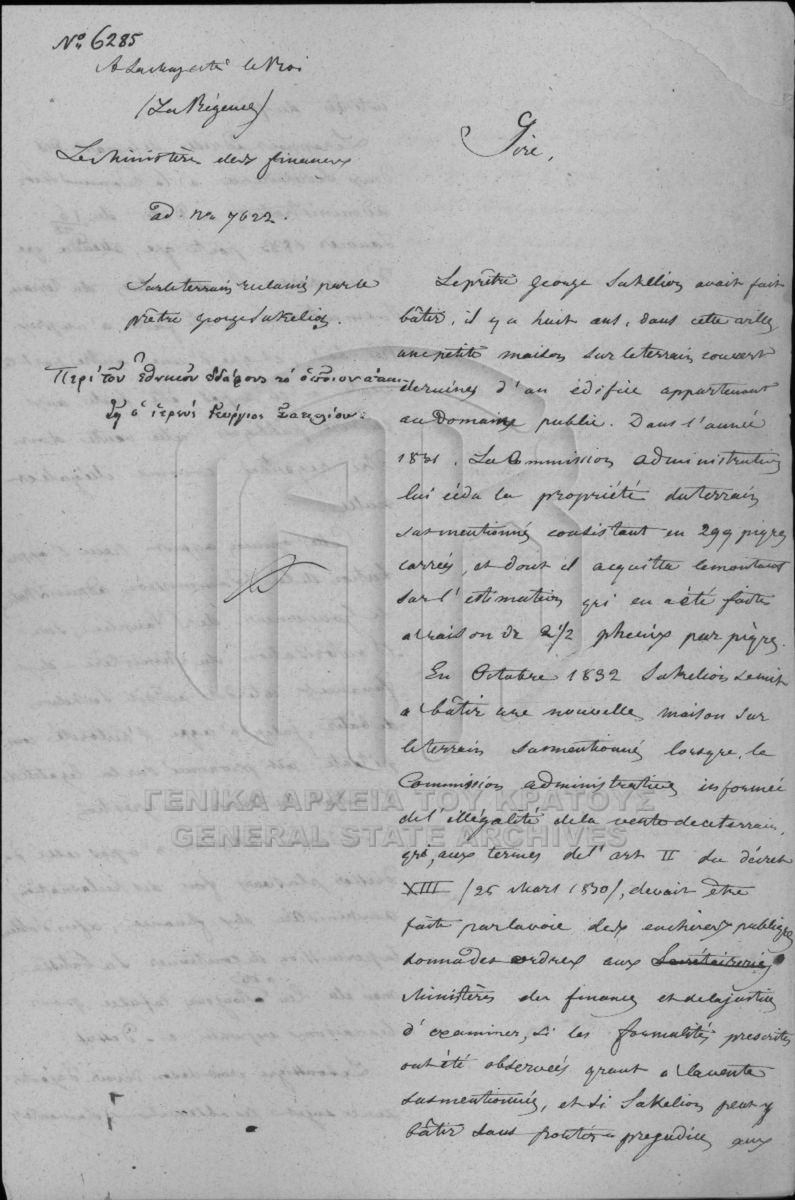 No 6285
A Sa Majesté le Roi
(La Régence)
Le Ministère des finances
ad. No 7622.
Sur le terrain réclamé par le
prêtre George Sakelion.
Περί τοῦ ἐθνικοῦ ἐδάφους τό ὁποῖον ἀπαι-
τεῖ ὁ ἱερεύς Γεώργιος Σακελίων.
Sire,
Le prêtre George Sakelion avait fait
bâtir, il y a huit ans, dans cette ville
une petite maison sur le terrain couvert
de ruines d'un édifice appartenant
au Domaine public. Dans l'année
1831, la Commission administrative
lui céda la propriété du terrain
susmentionné consistant en 299 piqres
carrés, et dont il acquitta le montant
sur l'estimation qui en a été faite
a raison de 2 1/2 phenix par piqre.
En Octobre 1832 Sakelion se mit
a bâtir une nouvelle maison sur
le terrain susmentionné lorsque, la
Commission administrative informée
de l'illégalité de la vente de ce terrain,
qui, aux termes de l'art II du décret
XIII /25 Mars 1830/, devait être
faite par la voie des enchères publiques
donna des ordres aux
Ministères des finances et de la justice
d'examiner, si les formalités prescrites
ont été observées quant a la vente
susmentionnée, et si Sakelion peut y
bâtir sans porter prejudice aux
ΓΕΝΙΚΑ ΑΡΧΕΙΑ ΤΟΥ ΚΡΑΤΟΥΣ
GENERAL STATE ARCHIVES